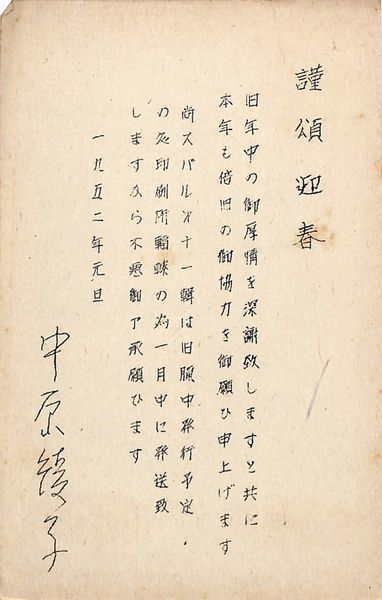 謹頌迎春
旧年中の御厚情を深謝致しますと共に
本年も倍旧の御協力を御願ひ申上げます
尚スバル第十一輯は旧臘中発行予定
の処印刷所輻輳の為一月中に発送致
しますから不悪御了承願ひます
一九五二年元旦
中原綾子